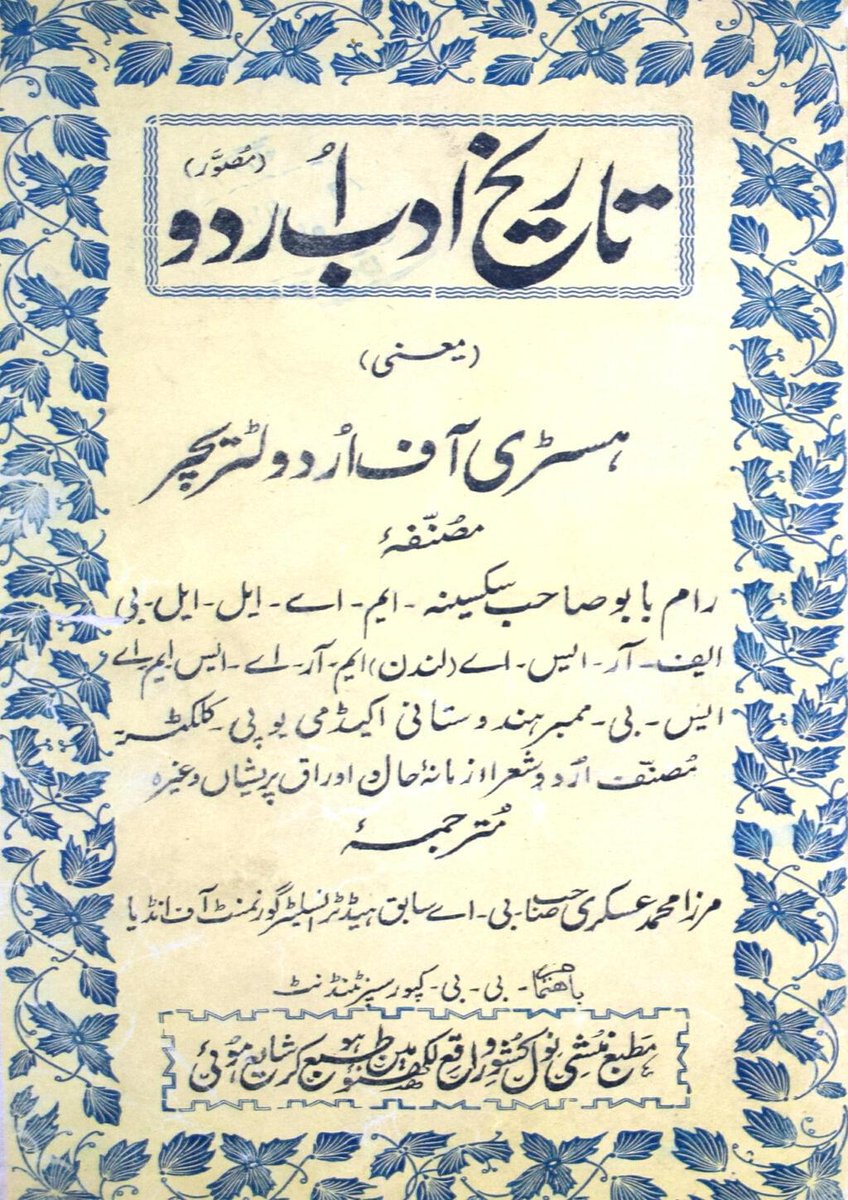 تاریخ ادب اُردو (مُصوَّر)
(یعنی)
ہسٹری آف اُردو لٹریچر
مصنّفۂ
رام بابو صاحب سکسینہ - ایم - اے - ایل - ایل - بی
ایف - آر - ایس - اے (لندن) ایم - آر - اے - ایس ایم اے
ایس - بی - ممبر ہندوستانی اکیڈمی یو پی - کلکٹر
مُصنّف اُردو شعراء زمانۂ حال و اوراق پریشاں وغیرہ
مُترجمہ
مرزا محمد عسکری صاحب بی - اے سابق ہیڈ ٹرانسلیٹر گورنمنٹ آف انڈیا
باہتمام - بی - بی - کپور سپرنٹنڈنٹ
مطبع مُنشی نول کشور واقع لکھنؤ مین طبع ہو کر شایع ہوئی